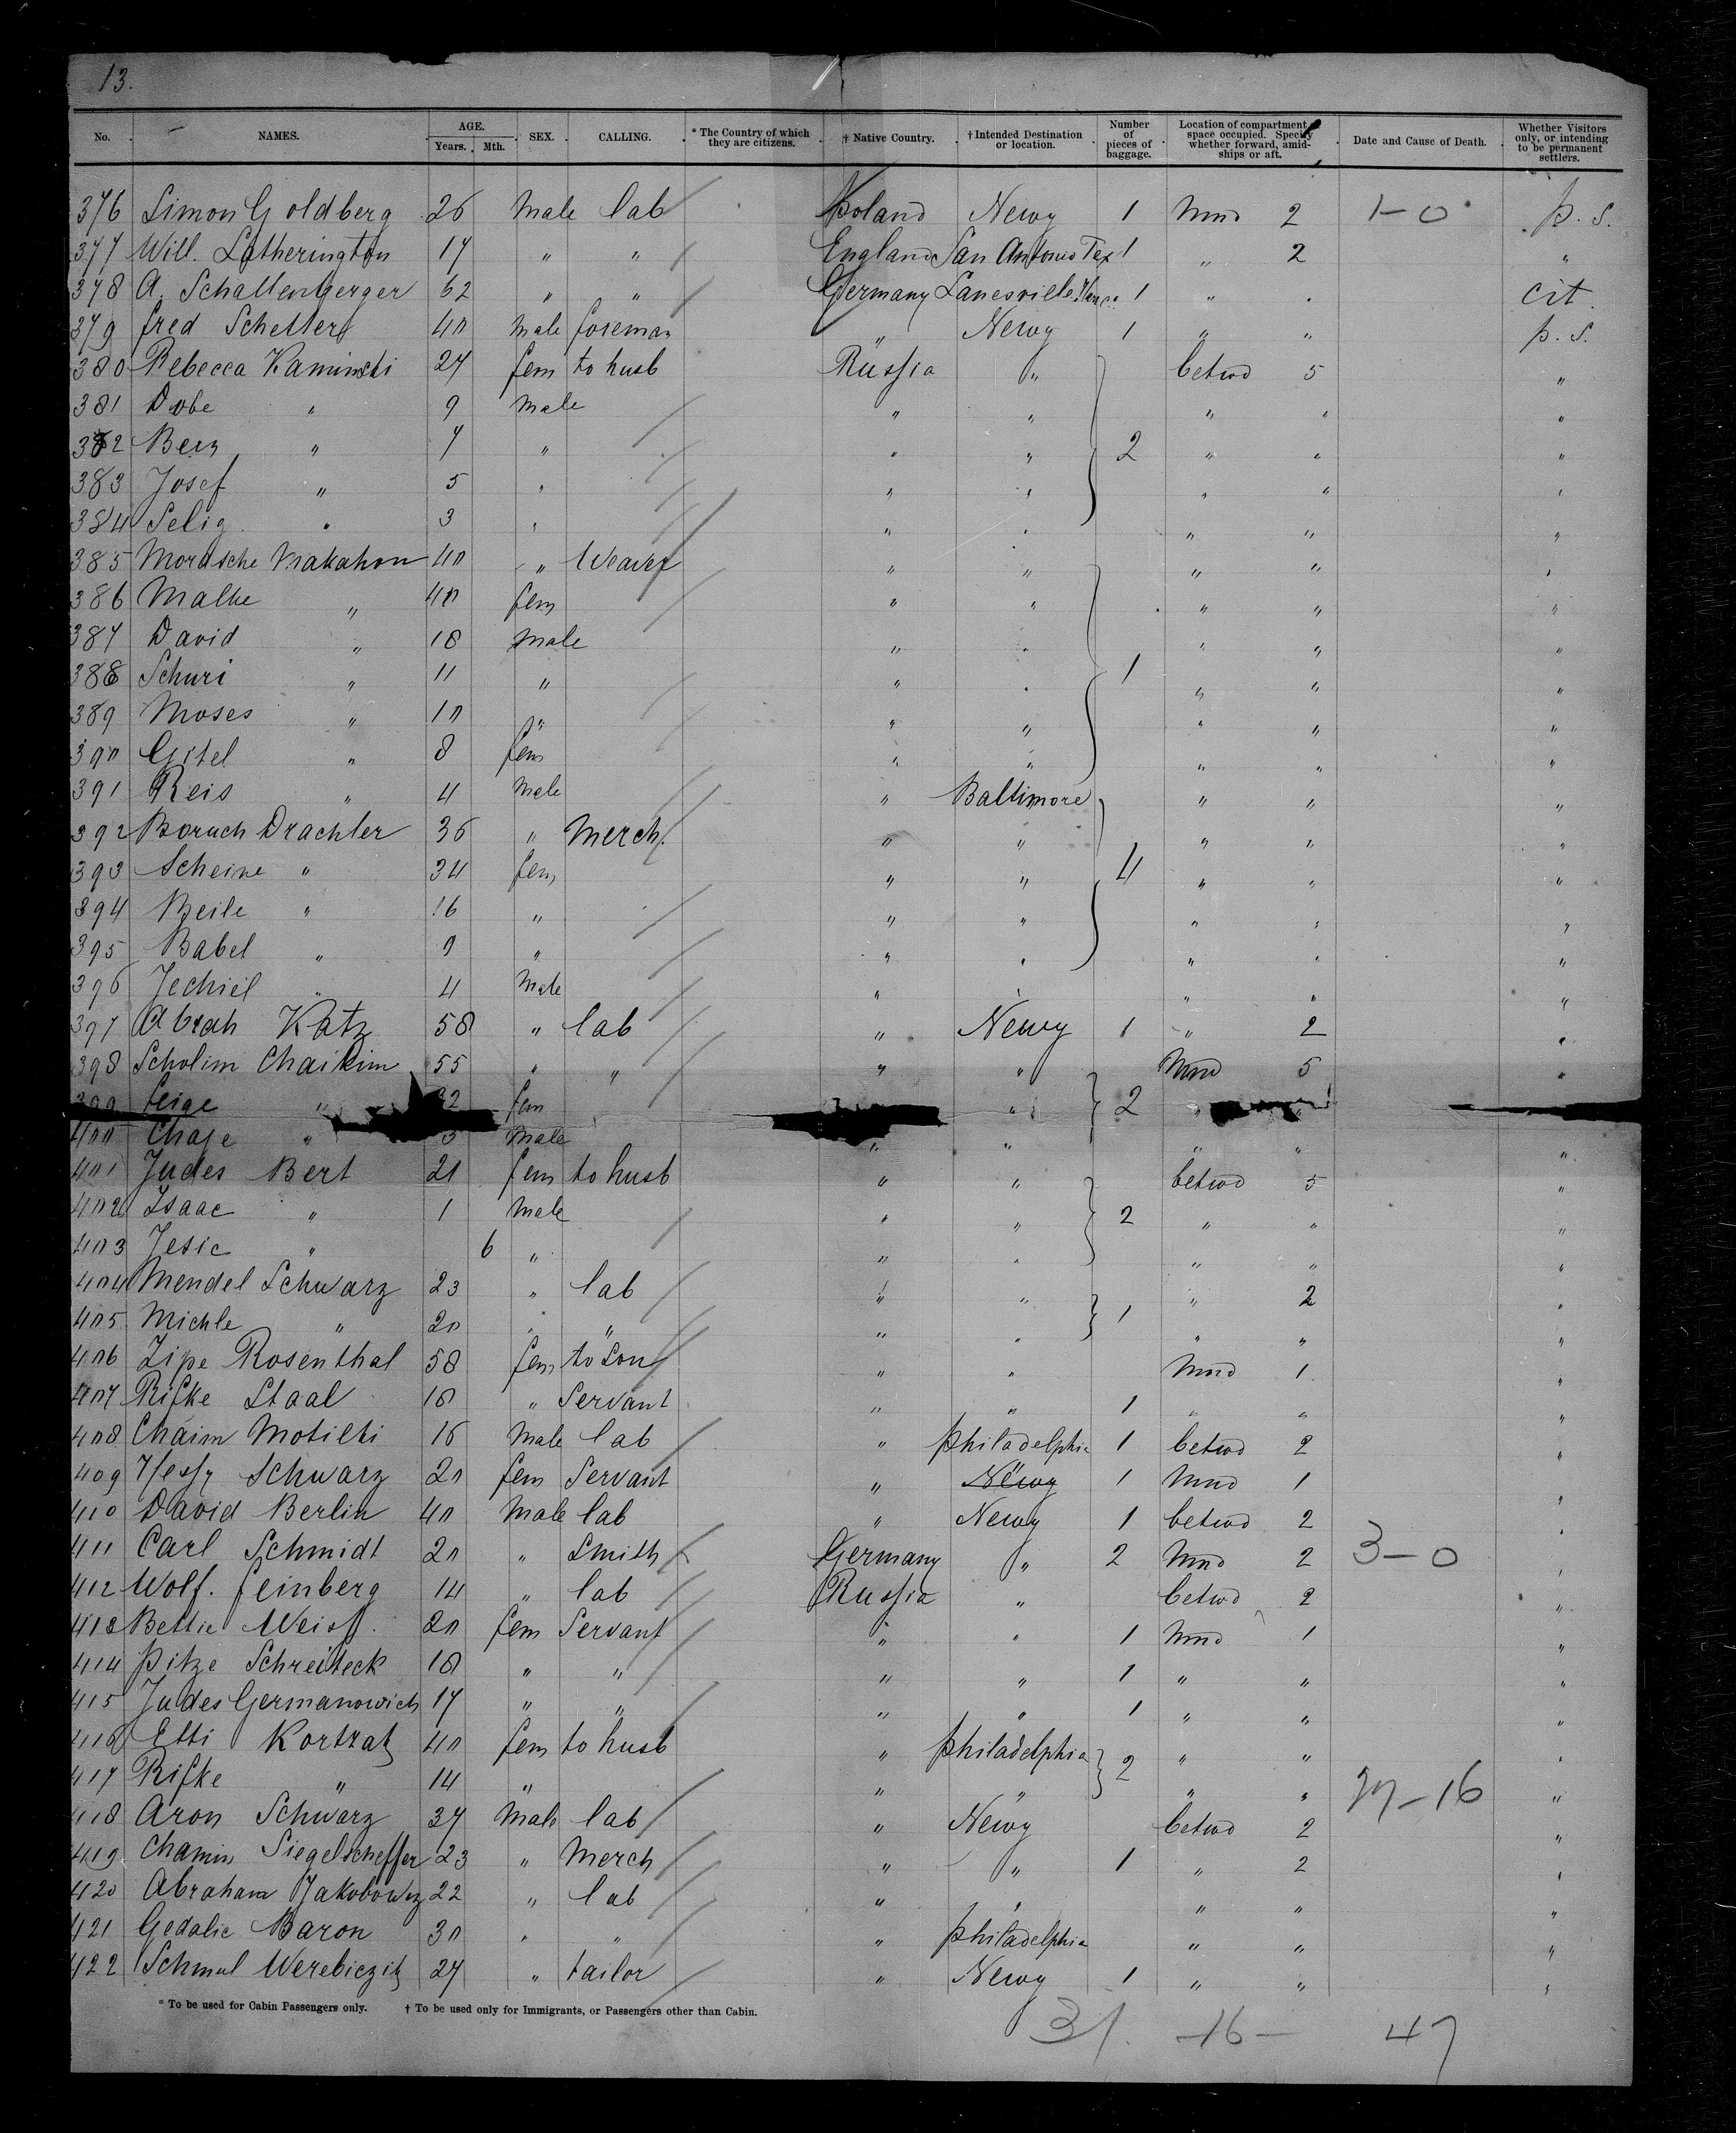 13.
No. NAMES. AGE. Years. Mth. SEX. CALLING. * The Country of which they are citizens. † Native Country. † Intended Destination or location. Number of pieces of baggage. Location of compartment space occupied. Specify whether forward, amidships or aft. Date and Cause of Death. Whether Visitors only, or intending to be permanent settlers.
376 Simon Goldberg 26 Male lab Poland Newy 1 Mmd 2 1-0 p. s.
377 Will. Lotherington 17 " " England San Antonio Tex 1 " 2 "
378 A. Schallenberger 62 " " Germany Lanesville 1 " " cit
379 fred Schetter 40 Male foreman " Newy 1 " " p. s.
380 Rebecca Kaminski 27 fem to husb Russia " betwd 5 "
381 Dobe " 9 Male " " " " "
382 Berz " 7 " " " 2 " " "
383 Josef " 5 " " " " " "
384 Selig " 3 " " " " " "
385 Mordsche Makahon 40 " Weaver " " " " "
386 Malke " 40 fem " " " " "
387 David " 18 Male " " " " "
388 Schuri " 11 " " " 1 " " "
389 Moses " 10 " " " " " "
390 Gitel " 8 fem " " " " "
391 Reis " 4 Male " Baltimore " " "
392 Boruch Drachler 36 " Merch. " " " " "
393 Scheine " 34 fem " " 4 " " "
394 Beile " 16 " " " " " "
395 Babel " 9 " " " " " "
396 Jechiel " 4 Male " " " " "
397 Abrah Katz 58 " lab " Newy 1 " 2 "
398 Scholim Chaikim 55 " " " " Mmd 5 "
399 feige " fem " 2 " "
400 Chaje " Male " " " " "
401 Judes Bert 21 fem to husb " " betwd 5 "
402 Isaac " 1 Male " " 2 " " "
403 Jesie " 6 " " " " " "
404 Mendel Schwarz 23 " lab " " " 2 "
405 Michle " 20 " " " " 1 " " "
406 Zipe Rosenthal 58 fem to Son " " Mmd 1 "
407 Rifke Staal 18 " Servant " " 1 " " "
408 Chaim Motilski 16 Male lab " Philadelphia 1 betwd 2 "
409 Hessy Schwarz 20 fem Servant " Newy 1 Mmd 1 "
410 David Berlin 40 Male lab " Newy 1 betwd 2 "
411 Carl Schmidt 20 " Smith Germany " 2 Mmd 2 3-0 "
412 Wolf. feinberg 14 " lab Russia " betwd 2 "
413 Bettie Weiss. 20 fem Servant " " 1 Mmd 1 "
414 Pitze Schreiteck 18 " " " " 1 " " "
415 Judes Germanowich 17 " " " " 1 " " "
416 Etti Kortratz 40 fem to husb " Philadelphia 2 " " "
417 Rifke " 14 " " " " " 27-16 "
418 Aron Schwarz 37 Male lab " Newy betwd 2 "
419 Chamin Siegelscheffer 23 " Merch " " 1 " 2 "
420 Abraham Jakobowiz 22 " lab " " " " "
421 Gedalie Baron 30 " " " Philadelphia " " "
422 Schmul Werebiczik 27 " tailor " Newy 1 " " "
* To be used for Cabin Passengers only. † To be used only for Immigrants, or Passengers other than Cabin.
31. -16- 47